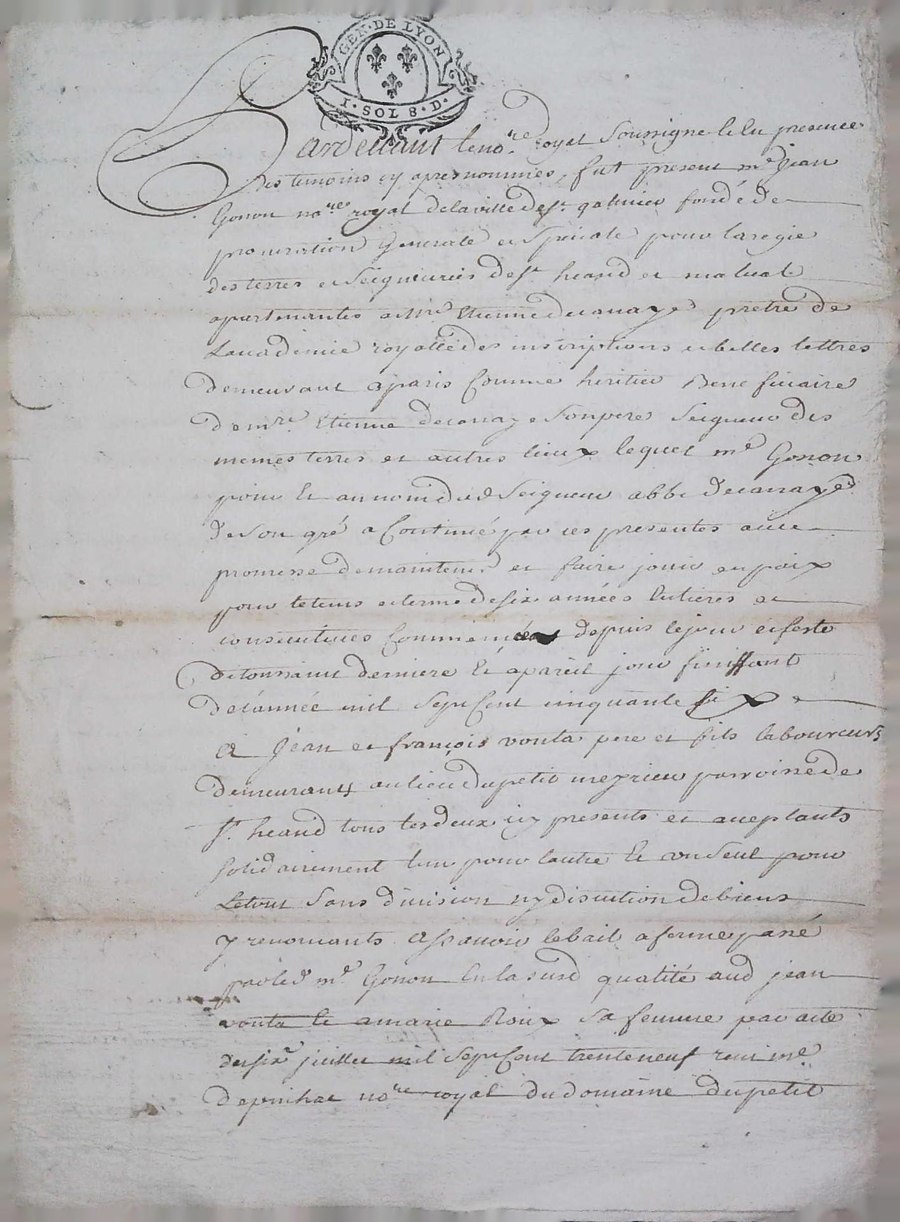 GEN. DE LYON
I. SOL 8. D.
Pardevant le no.re royal soussigne et en presence
des temoins cy apres nommés, fut present me Jean
Gonon no.re royal de la ville de st galmier fondé de
procuration generale et speciale pour la regie
des terres et seigneuries de st heand et malval
apartenantes a mre Etienne de canaye prêtre de
Lacademie royalle des inscriptions et belles lettres
demeurant a paris comme heritier Beneficiaire
de mre Etienne de canaye son pere Seigneur des
memes terres et autres lieux lequel me Gonon
pour et au nom dud Seigneur abbé de canaye
de son gré a Continué par ces presentes avec
promesse de maintenir et faire jouir en paix
pour le tems et terme de six années entieres et
consecutives Commencées depuis le jour et feste
de toussaint derniere et a pareil jour finissant
de l'année mil sept Cent cinquante six
a Jean et françois vouta pere et fils laboureurs
demeurants au lieu du petit meyrieu parroisse de
st heand tous les deux icy presents et aceptants
solidairement l'un pour lautre et un seul pour
Letout Sans division ny discution de biens
y renonçants assavoir le bail a ferme passé
par led me Gonon En la susd qualité aud jean
vouta et a marie Roux sa femme par acte
du six juillet mil sept Cent trente neuf reçu me
depinhac no.re royal du domaine du petit